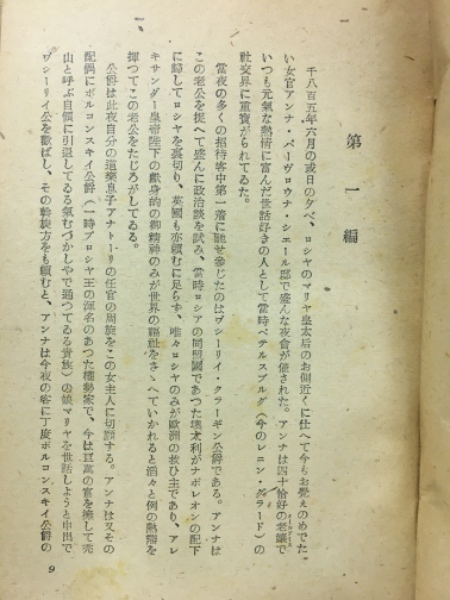 第一編
千八百五年六月の或日の夕べ、ロシヤのマリヤ皇太后のお側近くに仕へて今もお覺えのめでた
い女官アンナ・パーヴロウナ・シエール邸で盛んな夜會が催された。アンナは四十恰好の老孃で
いつも元氣な熱情に富んだ世話好きの人として當時ペテルスブルグ(今のレニン・グラード)の
社交界に重寶がられてゐた。
當夜の多くの招待客中第一着に馳せ參じたのはワシーリイ・クラーギン公爵である。アンナは
この老公を捉へて盛んに政治談を試み、當時ロシアの同盟國であつた墺太利がナポレオンの配下
に歸してロシヤを裏切り、英國も亦頼むに足らず、唯々ロシヤのみが歐洲の救ひ主であり、アレ
キサンダー皇帝陛下の獻身的の御精神のみが世界の福祉をさゝへていかれると滔々と例の熱辯を
揮つてこの老公をたじろがしてゐる。
公爵は此夜自分の道樂息子アナトーリの任官の周旋をこの女主人に切願する。アンナは又その
配偶にボルコンスキイ公爵(一時プロシヤ王の渾名のあつた權勢家で、今は巨萬の富を擁して禿
山と呼ぶ自領に引退してゐる氣むづかしやで通つてゐる貴族)の娘マリヤを世話しようと申出で
ワシーリイ公を歡ばし、その斡旋方をも頼むと、アンナは今夜の客に丁度ボルコンスキイ公爵の
9